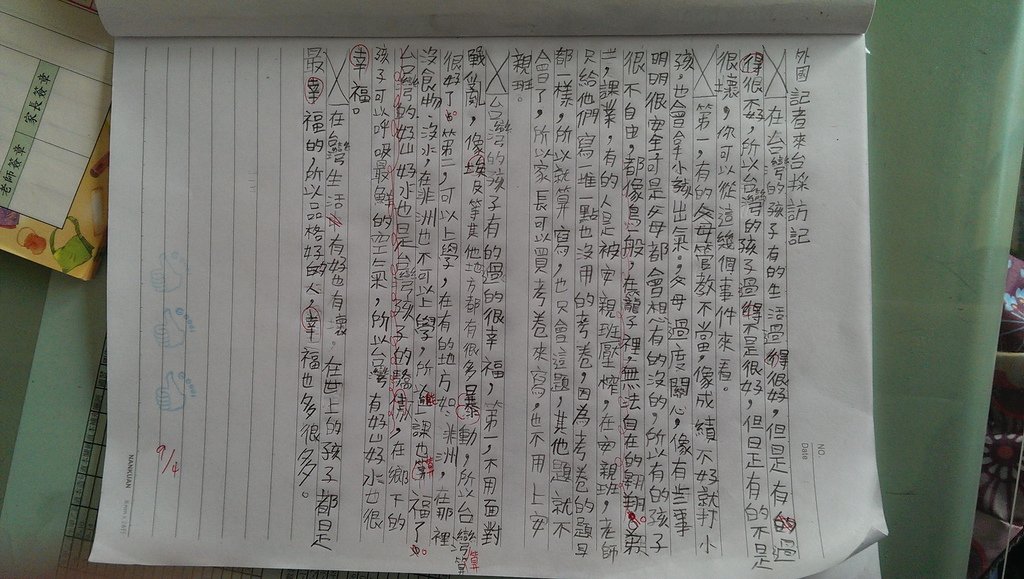 外國記者來台採訪記
在台灣的孩子有的生活過得很好,但是有的過
得很不好,所以台灣的孩子過得不是很好,但是有的不是
很壞,你可以從這幾個事件來看。
第一,有的父母管教不當,像成績不好就打小
孩,也會拿小孩出氣。父母過度關心,像有些事
明明很安全可是父母都會想有的沒的,所以有的孩子
很不自由,都像鳥一般,在籠子裡,無法自在的翱翔。第
二,課業,有的人是被安親班壓榨,在安親班,老師
只給他們寫一堆一點也沒用的考卷,因為考卷的題目
都一樣,所以就算寫,也只會這題,其他題就不
會了,所以家長可以買考卷來寫,也不用上安
親班。
台灣的孩子有的過的很幸福,第一,不用面對
戰亂,像埃及等其他地方都有很多暴動,所以台灣算
很好了。第二,可以上學,在有的地方如:非洲,在那裡
沒食物、沒水,在非洲也不可以上學,所以上課也算幸福了。
台灣的好山好水也是台灣孩子的驕傲,在鄉下的
孩子可以呼吸最鮮的空氣,所以台灣有好山好水也很
幸福。
在台灣生活有好也有壞,在世上的孩子都是
最幸福的,所以品格好的人,幸福也多很多。
9/4
NO.
Date
NANKUAN
老師簽章
家長簽章